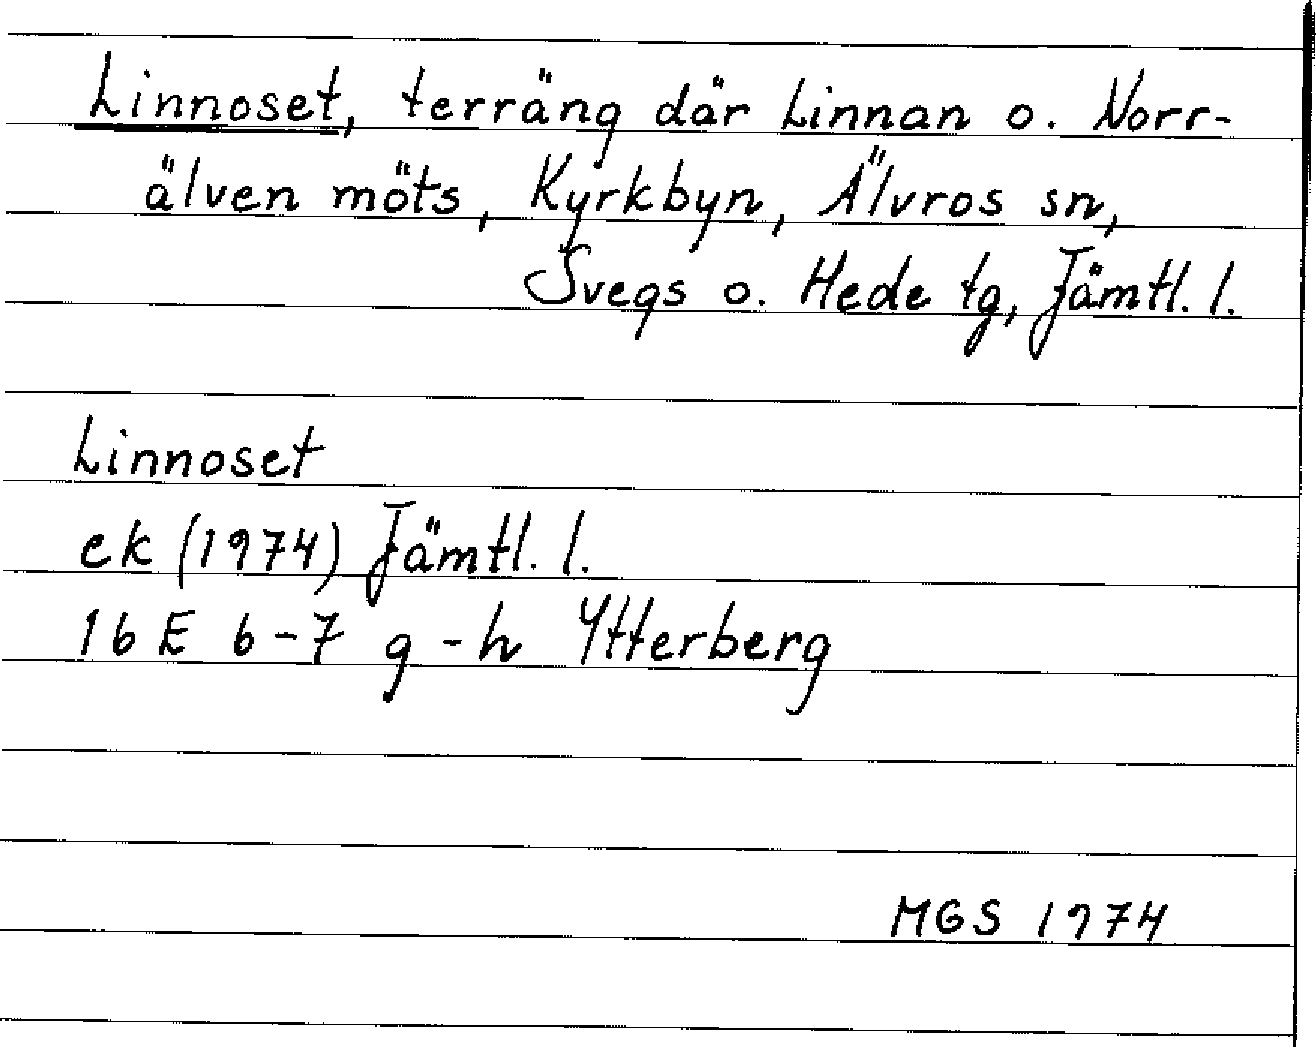 Linnoset, terräng där Linnan o. Norr-
älven möts, Kyrkbyn, Älvros sn,
Svegs o. Hede tg, Jämtl. l.
Linnoset
ek (1974) Jämtl. l.
16 E 6-7 g-h Ytterberg
MGS 1974